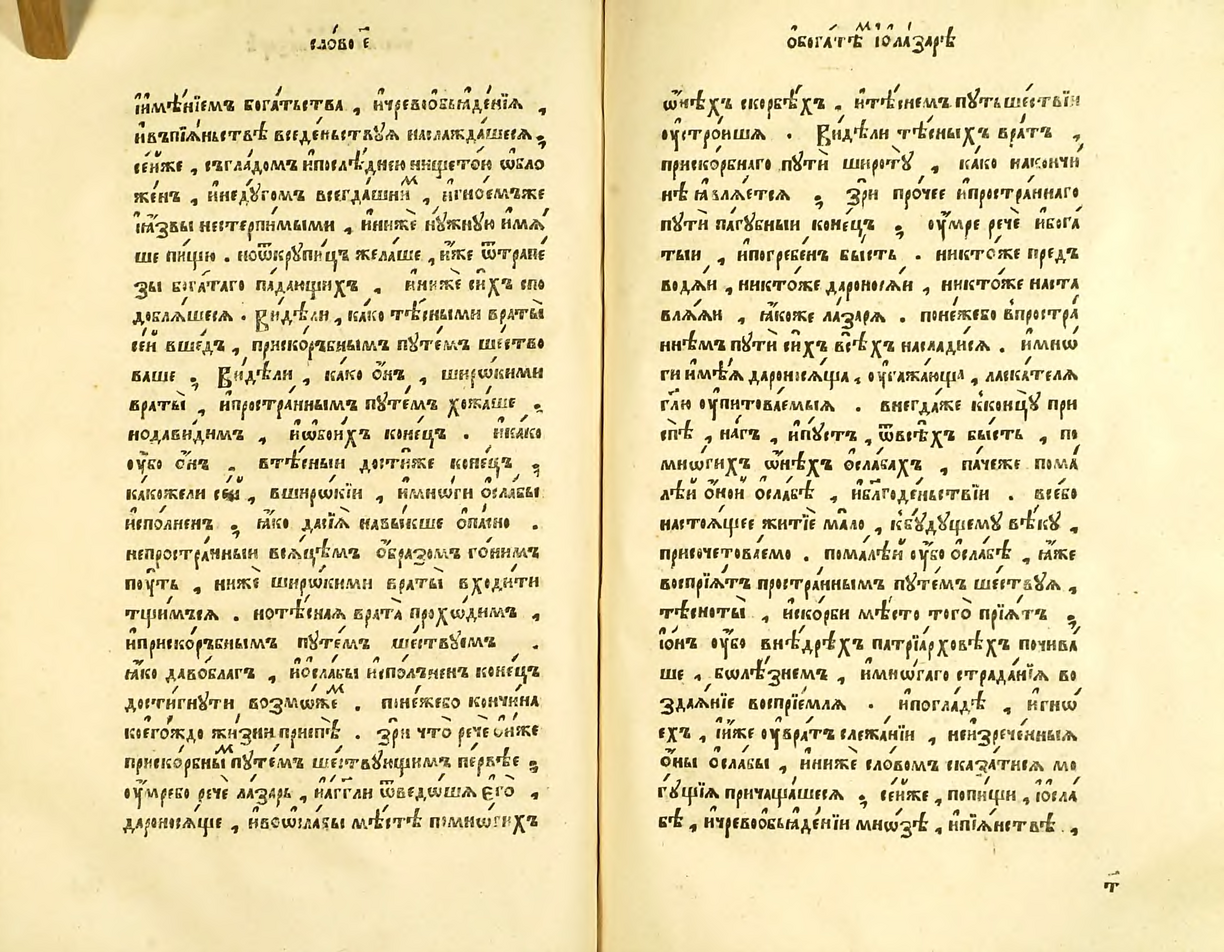 сло́во е҃
и҆имѣ́нїемъ бога́тьства , и҆чревоѡбьꙗде́нїѧ ,
и҆въпїѧ́ньствѣ вседе́ньствуѧ наслажда́шеесѧ ;
се́йже , съгла́домъ и҆послѣ́днею нището́ю ѡ҆бло
же́нъ , и҆неду́гомъ всегда́шниⷨ , и҆гное́мъже
ꙗ҆́звы нестерпи́мыми , и҆нижѐ ну́жную и҆мѧ́
ше пи́щю . ноѿкрупи́цъ жела́ше , и҆́же ѿтрапе
зы бога́таго па́дающихъ , и҆нижѐ си́хъ спо
доблѧ́шеесѧ . ви́дѣли , ка́ко тѣ́сными враты̀
се́й вше́дъ , приско́ръбнымъ путе́мъ ше́ство
ваше ; Ви́дѣли , ка́ко ѻ҆́нъ , широ́кими
враты̀ , и҆простра́ннымъ путе́мъ хожа́ше ;
нодави́димъ , и҆ѡ҆бои́хъ коне́цъ . и҆ка́ко
оу҆́бо ѻ҆́нъ , втѣ́сныи дости́же коне́цъ ;
ка́кожели се́й , вширѡ́кїи , и҆мнѡ́ги ѻ҆сла́бы
и҆спо́лненъ ; ꙗ҆́ко дасїѧ̀ навы́кше ѻ҆па́сно .
непростра́нныи всѧ́цѣмъ ѻ҆́бразомъ го́нимъ
поу́ть , нижѐ широ́кими враты̀ входи́ти
тщи́мъсѧ . нотѣ́снаѧ врата̀ прохо́димъ ,
и҆приско́ръбнымъ путе́мъ ше́ствуемъ .
ꙗ҆́ко давобла́гъ , и҆ѻ҆сла́бы и҆спо́лъненъ коне́цъ
дости́гнути возмо́жеⷨ . поне́жебо кончи́на
коего́ждо жи́зни приспѣ̀ . зрѝ что̀ речѐ ѻ҆и́же
приско́рбныⷨ путе́мъ ше́ствующимъ пе́рвѣе ;
оу҆́мребо речѐ ла́зарь , и҆а҆́гг҃ли ѿведо́шѧ є҆го̀ ,
дароно́сѧще , и҆всѡ҆сла́бы мѣ́стѣ помно́гихъ
ѻ҆бога́тѣⷨ и҆ѻ҆ла́зарѣ
ѡ҆́нѣхъ ско́рбѣхъ , и҆тѣ́снемъ пу́тьше́ствїи
оу҆стро́ишѧ . Ви́дѣли тѣ́сныхъ вра́тъ ,
приско́рбнаго путѝ широту̀ , ка́ко накончи
нѣ̀ ꙗ҆влѧ́етсѧ ; зрѝ про́чее и҆простра́ннаго
путѝ па́губныи коне́цъ ; оу҆́мре речѐ и҆бога
тыи , и҆погребе́нъ бы́сть . никто́же пре́дъ
водѧ́и , никто́же дароносѧ́и , никто́же наста
влѧ́ѧи , ꙗ҆́коже ла́зарѧ . поне́жебо впростра́
ннѣмъ путѝ си́хъ всѣ́хъ наслади́сѧ . и҆мнѡ́
ги и҆мѣ́ѧ дароно́сѧща , оу҆гажа́юща , ласка́телѧ
гл҃ю оу҆пито́ваемыѧ . внегда́же кконцу̀ при
спѣ̀ , на́гъ , и҆пу́стъ , ѿвсѣ́хъ бы́сть , по
мно́гихъ ѡ҆́нѣхъ ѻ҆сла́бахъ , па́чеже пома́
лѣ́й ѻ҆́ной ѻ҆сла́бѣ , и҆бл҃годе́ньствїи . все́бо
настоѧ́щее житїѐ ма́ло , кбу́дущему вѣ́ку ,
присочето́ваемо . пома́лѣй оу҆́бо ѻ҆сла́бѣ , ꙗ҆́же
воспрїѧ́тъ простра́ннымъ путе́мъ ше́ствуѧ ,
тѣсноты̀ , и҆ско́рби мѣ́сто того̀ прїѧ́тъ ;
и҆ѻ҆́нъ оу҆́бо внѣ́дрѣхъ патрїа́рховѣхъ почива́
ше , бѡлѣ́знемъ , и҆мнѡ́гаго страда́нїѧ во
здаѧ́нїе воспрїе́млѧ . и҆погла́дѣ , и҆гнѡ
ехъ , и҆и҆́же оу҆вра́тъ слежа́нїи , неизрече́нныѧ
ѻ҆́ны ѻ҆сла́бы , и҆нижѐ сло́вомъ сказа́тисѧ мо
гу́щїѧ причаща́шеесѧ ; се́йже , попи́щи , и҆ѻ҆сла́
бѣ , и҆чревоѡбьꙗде́нїи мно́зѣ , и҆пїѧ́нствѣ ,
т҃